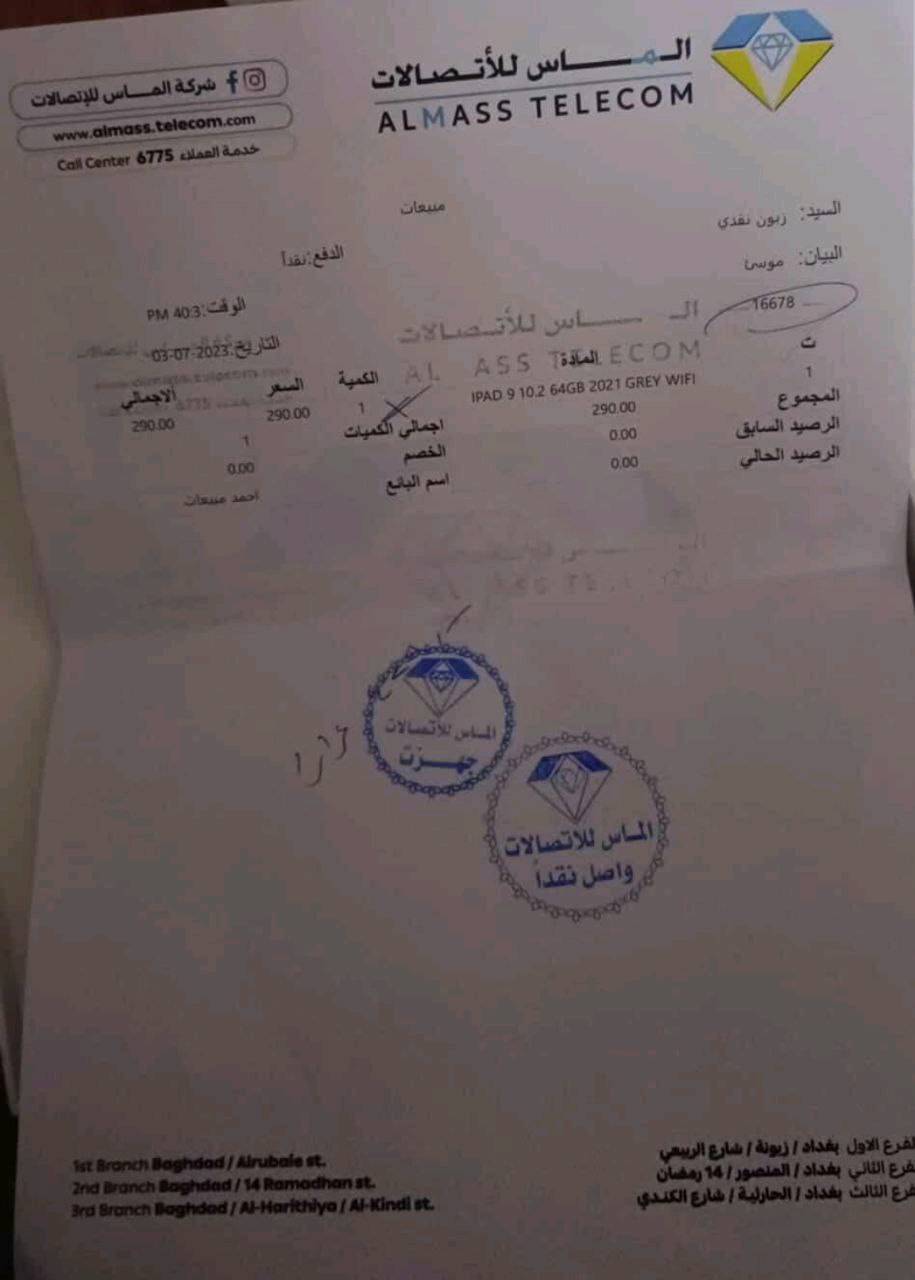 المـاس للأتـصالات
ALMASS TELECOM
شركة المـاس للإتصالات
www.almass.telecom.com
Call Center 6775 خدمة العملاء
مبيعات
السيد: زبون نقدي
الدفع: نقداً
البيان: موسى
الوقت: 40:3 PM
16678
التاريخ: 03-07-2023
ت المادة الكمية السعر الاجمالي
1 IPAD 9 10.2 64GB 2021 GREY WIFI 1 290.00 290.00
المجموع 290.00 اجمالي الكميات 1
الرصيد السابق 0.00 الخصم 0.00
الرصيد الحالي 0.00 اسم البائع احمد مبيعات
الماس للأتصالات
جهزت
الماس للاتصالات
واصل نقداً
1st Branch Baghdad / Alrubaie st.
2nd Branch Baghdad / 14 Ramadhan st.
3rd Branch Baghdad / Al-Harithiya / Al-Kindi st.
لفرع الاول بغداد / زيونة / شارع الربيعي
فرع الثاني بغداد / المنصور / 14 رمضان
فرع الثالث بغداد / الحارثية / شارع الكندي